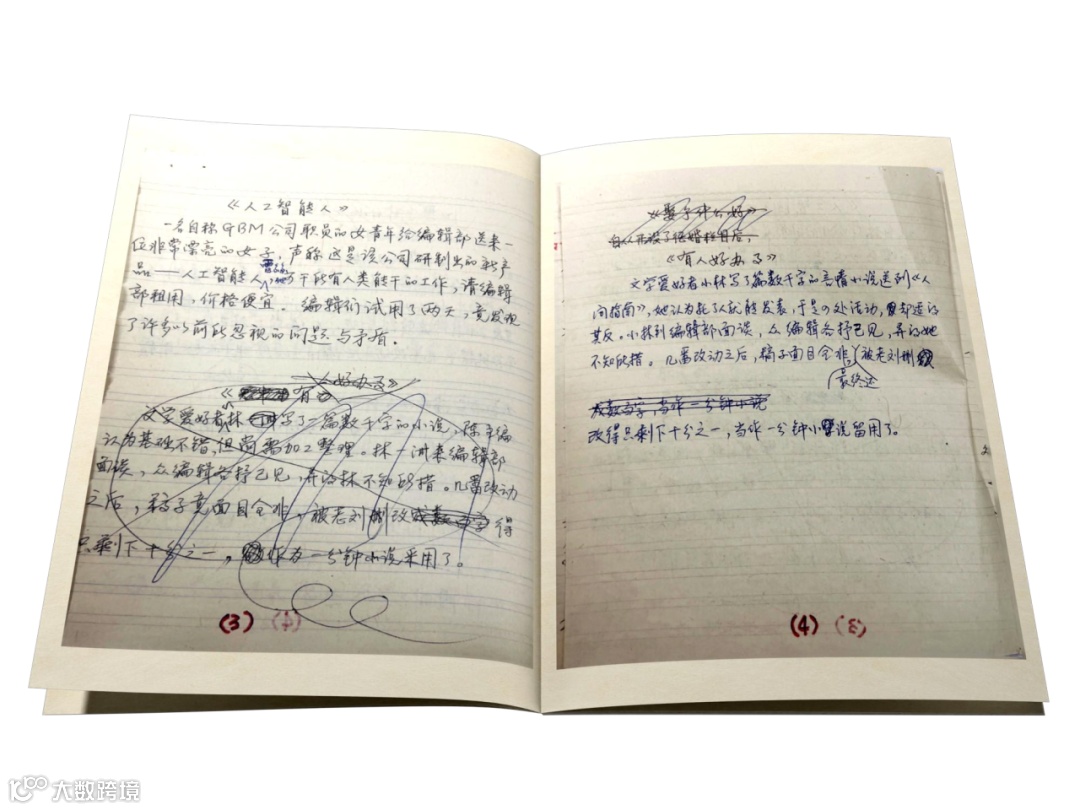 《人工智能人》
一名自称GBM公司职员的女青年给编辑部送来一
位非常漂亮的女子，声称这是该公司研制出的新产
品——人工智能人，能干所有人类能干的工作，请编辑
部租用，价格便宜。编辑们试用了两天，竟发现
了许多以前所忽视的问题与矛盾。
《有人好办了》
文学爱好者林写了一篇数千字的小说，陈主编
认为基础不错，但尚需加工整理。林一洲来编辑部
面谈，众编辑各抒己见，弄的林不知所措。几番改动
之后，稿子竟面目全非，被老刘删改得
只剩下十分之一，作为一分钟小说采用了。
(3)
《妻子什么好》
自从下设了征婚栏目后，
《有人好办了》
文学爱好者小林写了篇数千字的言情小说送到《人
间指南》，她认为托了人就能发表，于是四处活动，却适得
其反。小林到编辑部面谈，众编辑各抒己见，弄的她
不知所措。几番改动之后，稿子面目全非，被老刘删
最终还
成数百字，当作一分钟小说
改得只剩下十分之一，当作一分钟小说留用了。
(4)
大数跨境